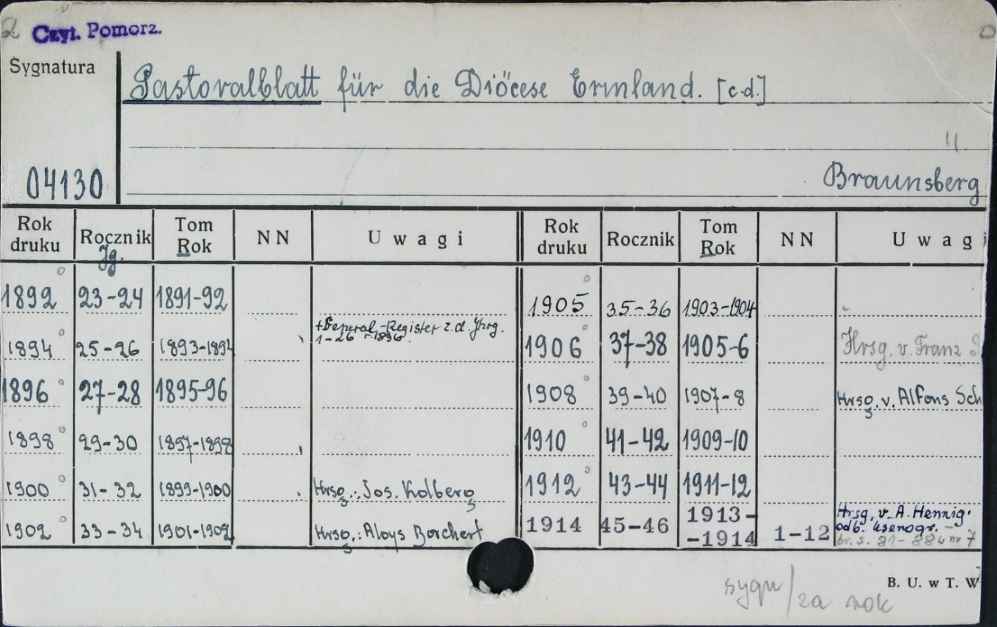 2 Czyt. Pomorz.
Sygnatura
Pastoralblatt für die Diöcese Ermland. [c.d.]
04130
Braunsberg
Rok druku Rocznik Jg. Tom Rok NN Uwagi Rok druku Rocznik Tom Rok NN Uwagi
1892° 23-24 1891-92 1905° 35-36 1903-1904
1894° 25-26 1893-1894 +General-Register z.d. Jhrg. 1-26 1896. 1906° 37-38 1905-6 Hrsg. v. Franz
1896° 27-28 1895-96 1908° 39-40 1907-8 Hrsg. v. Alfons Sch
1898° 29-30 1897-1898 1910 41-42 1909-10
1900° 31-32 1899-1900 Hrsg.: Jos. Kolberg 1912° 43-44 1911-12
1902° 33-34 1901-1902 Hrsg.: Aloys Borchert 1914 45-46 1913-
-1914 1-12 Hrsg. v. A. Hennig.
odb. ksenogr. -
br. s. 81-88 4 nr 7
B. U. w T. W
sygn/za rok